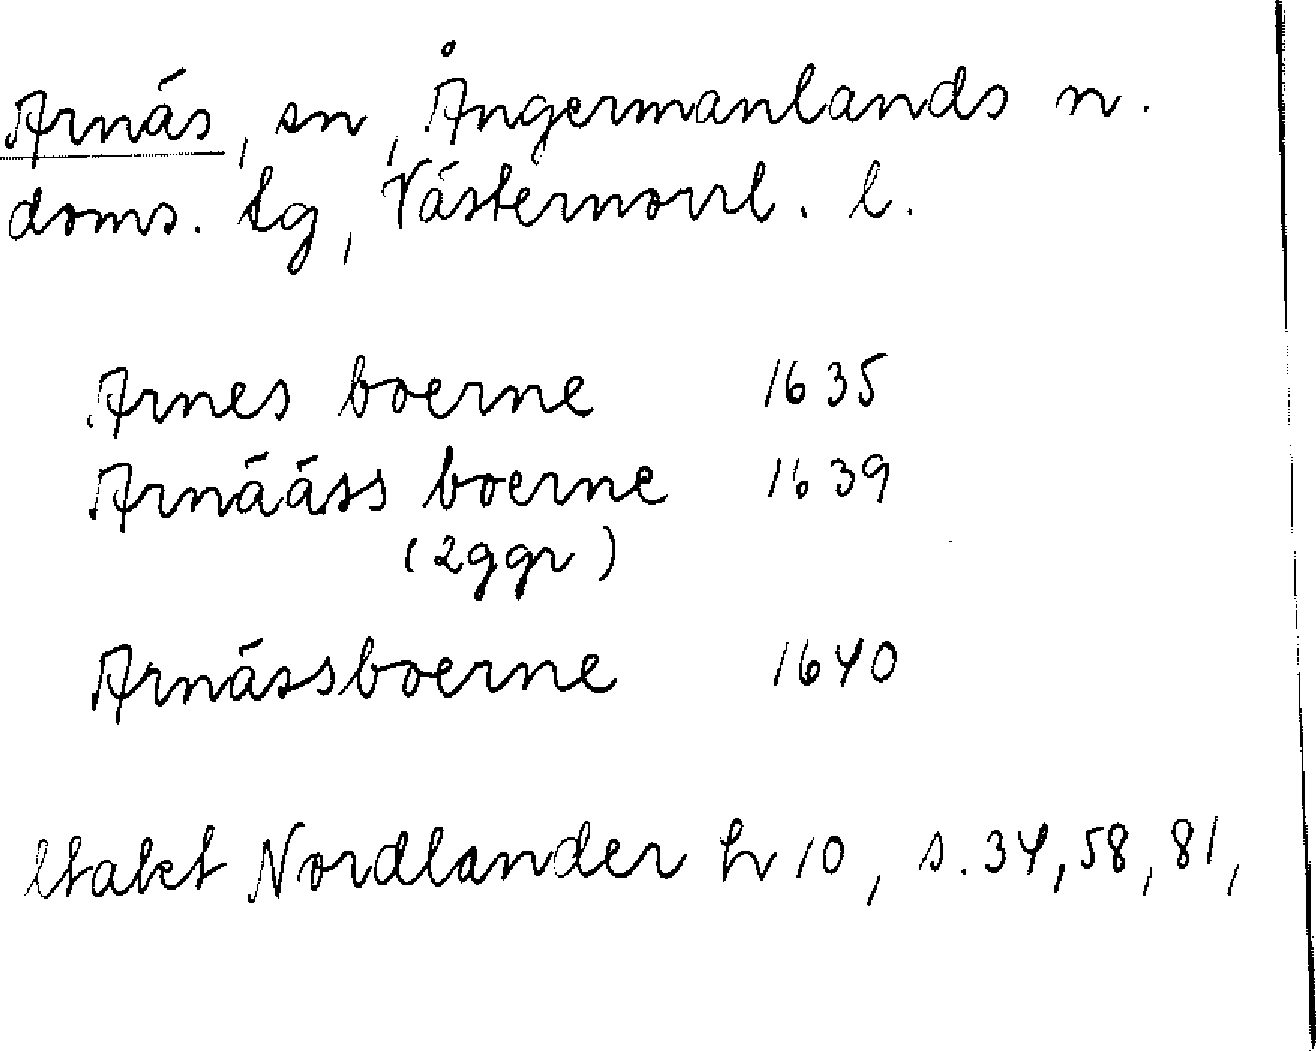 Arnäs, sn, Ångermanlands n.
doms. tg, Västernorrl. l.
Arnes boerne 1635
Arnääss boerne 1639
(2ggr)
Arnässboerne 1640
Nordlander h 10, s. 34, 58, 81,